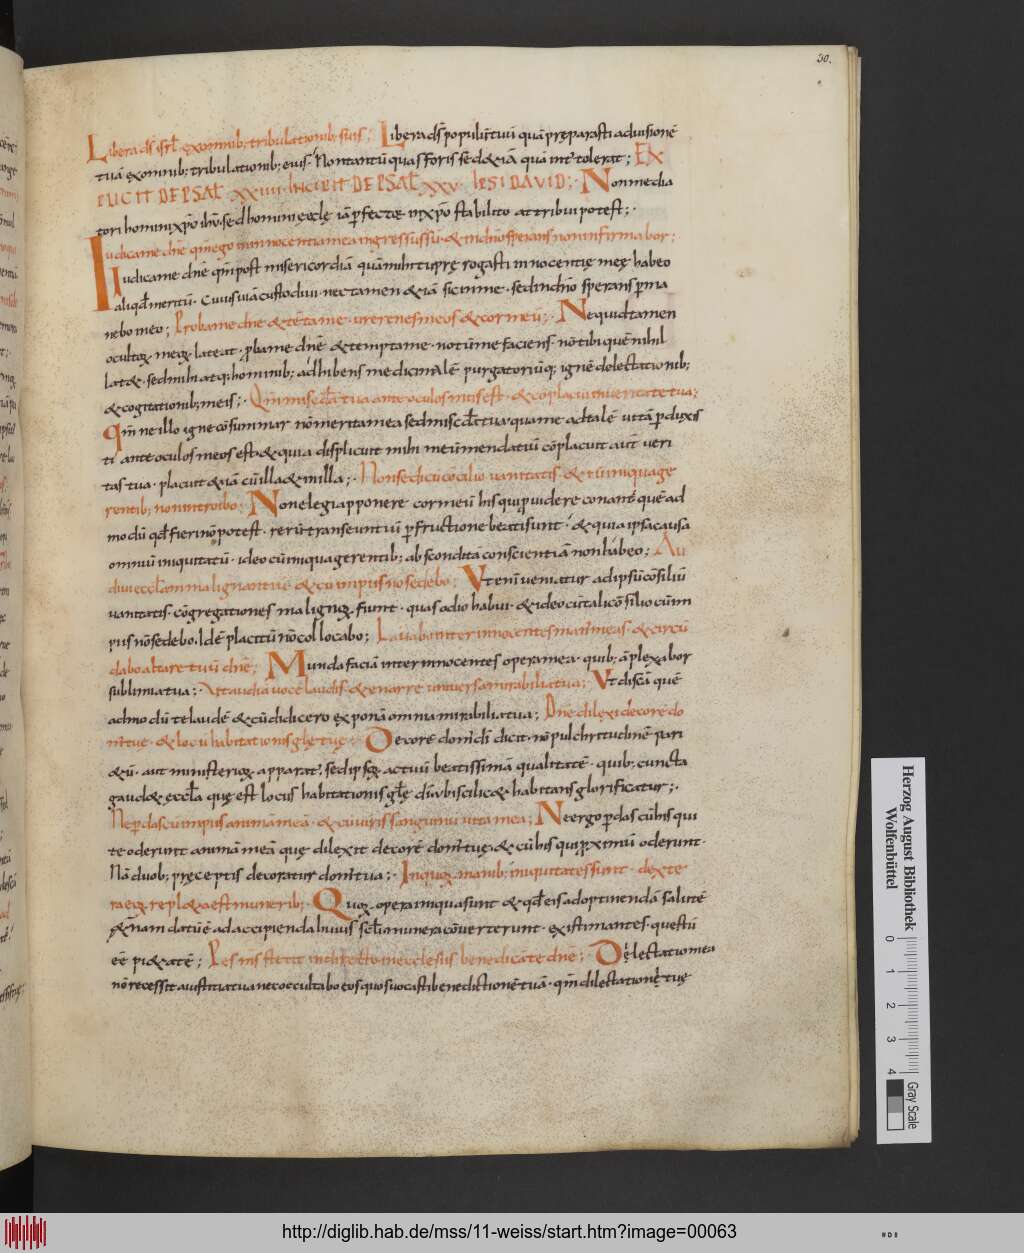 30.
Libera ds isrl exomnib; tribulationib; suis; Libera ds populu tuu quā preparasti aduisionē
tuā exomnib; tribulationib; eius. Non tantū quas foris sed & iā quā int tolerat; EX
PLICIT DE PSAL XXIIII INCIPIT DE PSAL XXV IPSI DAVID; Non media
tori homini xpo ihu. sed homini ęcclę iā perfectę in xpo stabilito attribui potest;
Iudica me dne qm ego in innocentia mea ingressus sū & in dno sperans non infirmabor;
Iudica me dnē qm post misericordiā quā mihi tu prę rogasti in innocentię meę habeo
aliqd meritū. Cuius uiā custodiui nec tamen & iā sic in me. sed in dno sperans pma
nebo meo; Proba me dne & tēta me. ure renes meos & cor meū; Ne quid tamen
ocultoꝝ meoꝝ lateat. proba me dnē & tempta me. not ū me faciens. nō tibi quē nihil
lat&. sed mihi atq; hominib; adhibens medicinalē purgatoriūq; ignē delectationib;
& cogitationib; meis; Qm misedia tua ante oculos mis est & cōplacui in ueritate tua;
Qm ne illo igne cōsummar nō merita mea sed miscdia tua qua me ad talē uitā pduxis
ti ante oculos meos est & quia displicuit mihi meū mendatiū cōplacuit aut ueri
tas tua. placuit & iā cū illa & in illa; Non sedi cū cōcilio uanitatis & cū iniqua ge
rentib; non introibo; Non elegi apponere cor meū his qui puidere conant quē ad
modū qd fieri nō potest. reru transeuntiū p fructione beati sunt & quia ipsa causa
omniū iniquitatū. ideo cū iniqua gerentib; abscondită conscientiā non habeo; Au
diui ecclam malignantiū & cū impiis nō sedebo; Vt enī ueniatur ad ipsū cōsiliū
uanitatis. cōgregationes malignoꝝ fiunt. quas odio habui. & ideo cū tali cōsilio cū im
piis nō sedebo. Idē placitū nō collocabo; Lauabo inter innocentes man meas & circū
dabo altare tuū dnē; Munda faciā inter innocentes opera mea. quib; āplexabor
sublimia tua; Vt audiā uocē laudis & enarrē uniuersa mirabilia tua; Vt discā quē
admodū te laudē & cū didicero exponā omnia mirabilia tua; Dne dilexi decorē do
mꝰ tuę & locū habitationis glę tuę; Decorē domꝰ dī dicit. nō pulchritudinē pari
& ū. aut ministerioꝝ apparatꝰ. sed ipsoꝝ actuū beatissimā qualitatē. quib; cuncta
gaud& eccla quę est locus habitationis glę dī ubi scilic& habitans glorificatur;
Ne pdas cū impiis animā meā & cū uiris sanguinū uitā meā; Ne ergo pdas cū his qui
te oderunt animā meā quę dilexit decorē domꝰ tuę & cū his qui proximū oderunt.
Nā duob; pręceptis decoratur domꝰ tua; In quoꝝ manib; iniquitates sunt. dexte
ra eoꝝ repleta est muneribꝰ; Quoꝝ opera iniqua sunt & qd eis ad optinendā salutē
ęternam datū ē ad accipienda huius scli munera cōuerterunt. existimantes. questū
eē pi&atē; Pes ms stetit in directo in ecclesiis benedicā te dnē; Delectatio mea
nō recessit a iustitia tua nec occultabo eos quos uocasti benedictionē tuā. qm dilectationē tuę
Herzog August Bibliothek
Wolfenbüttel
0
1
2
3
4
Gray Scale
http://diglib.hab.de/mss/11-weiss/start.htm?image=00063